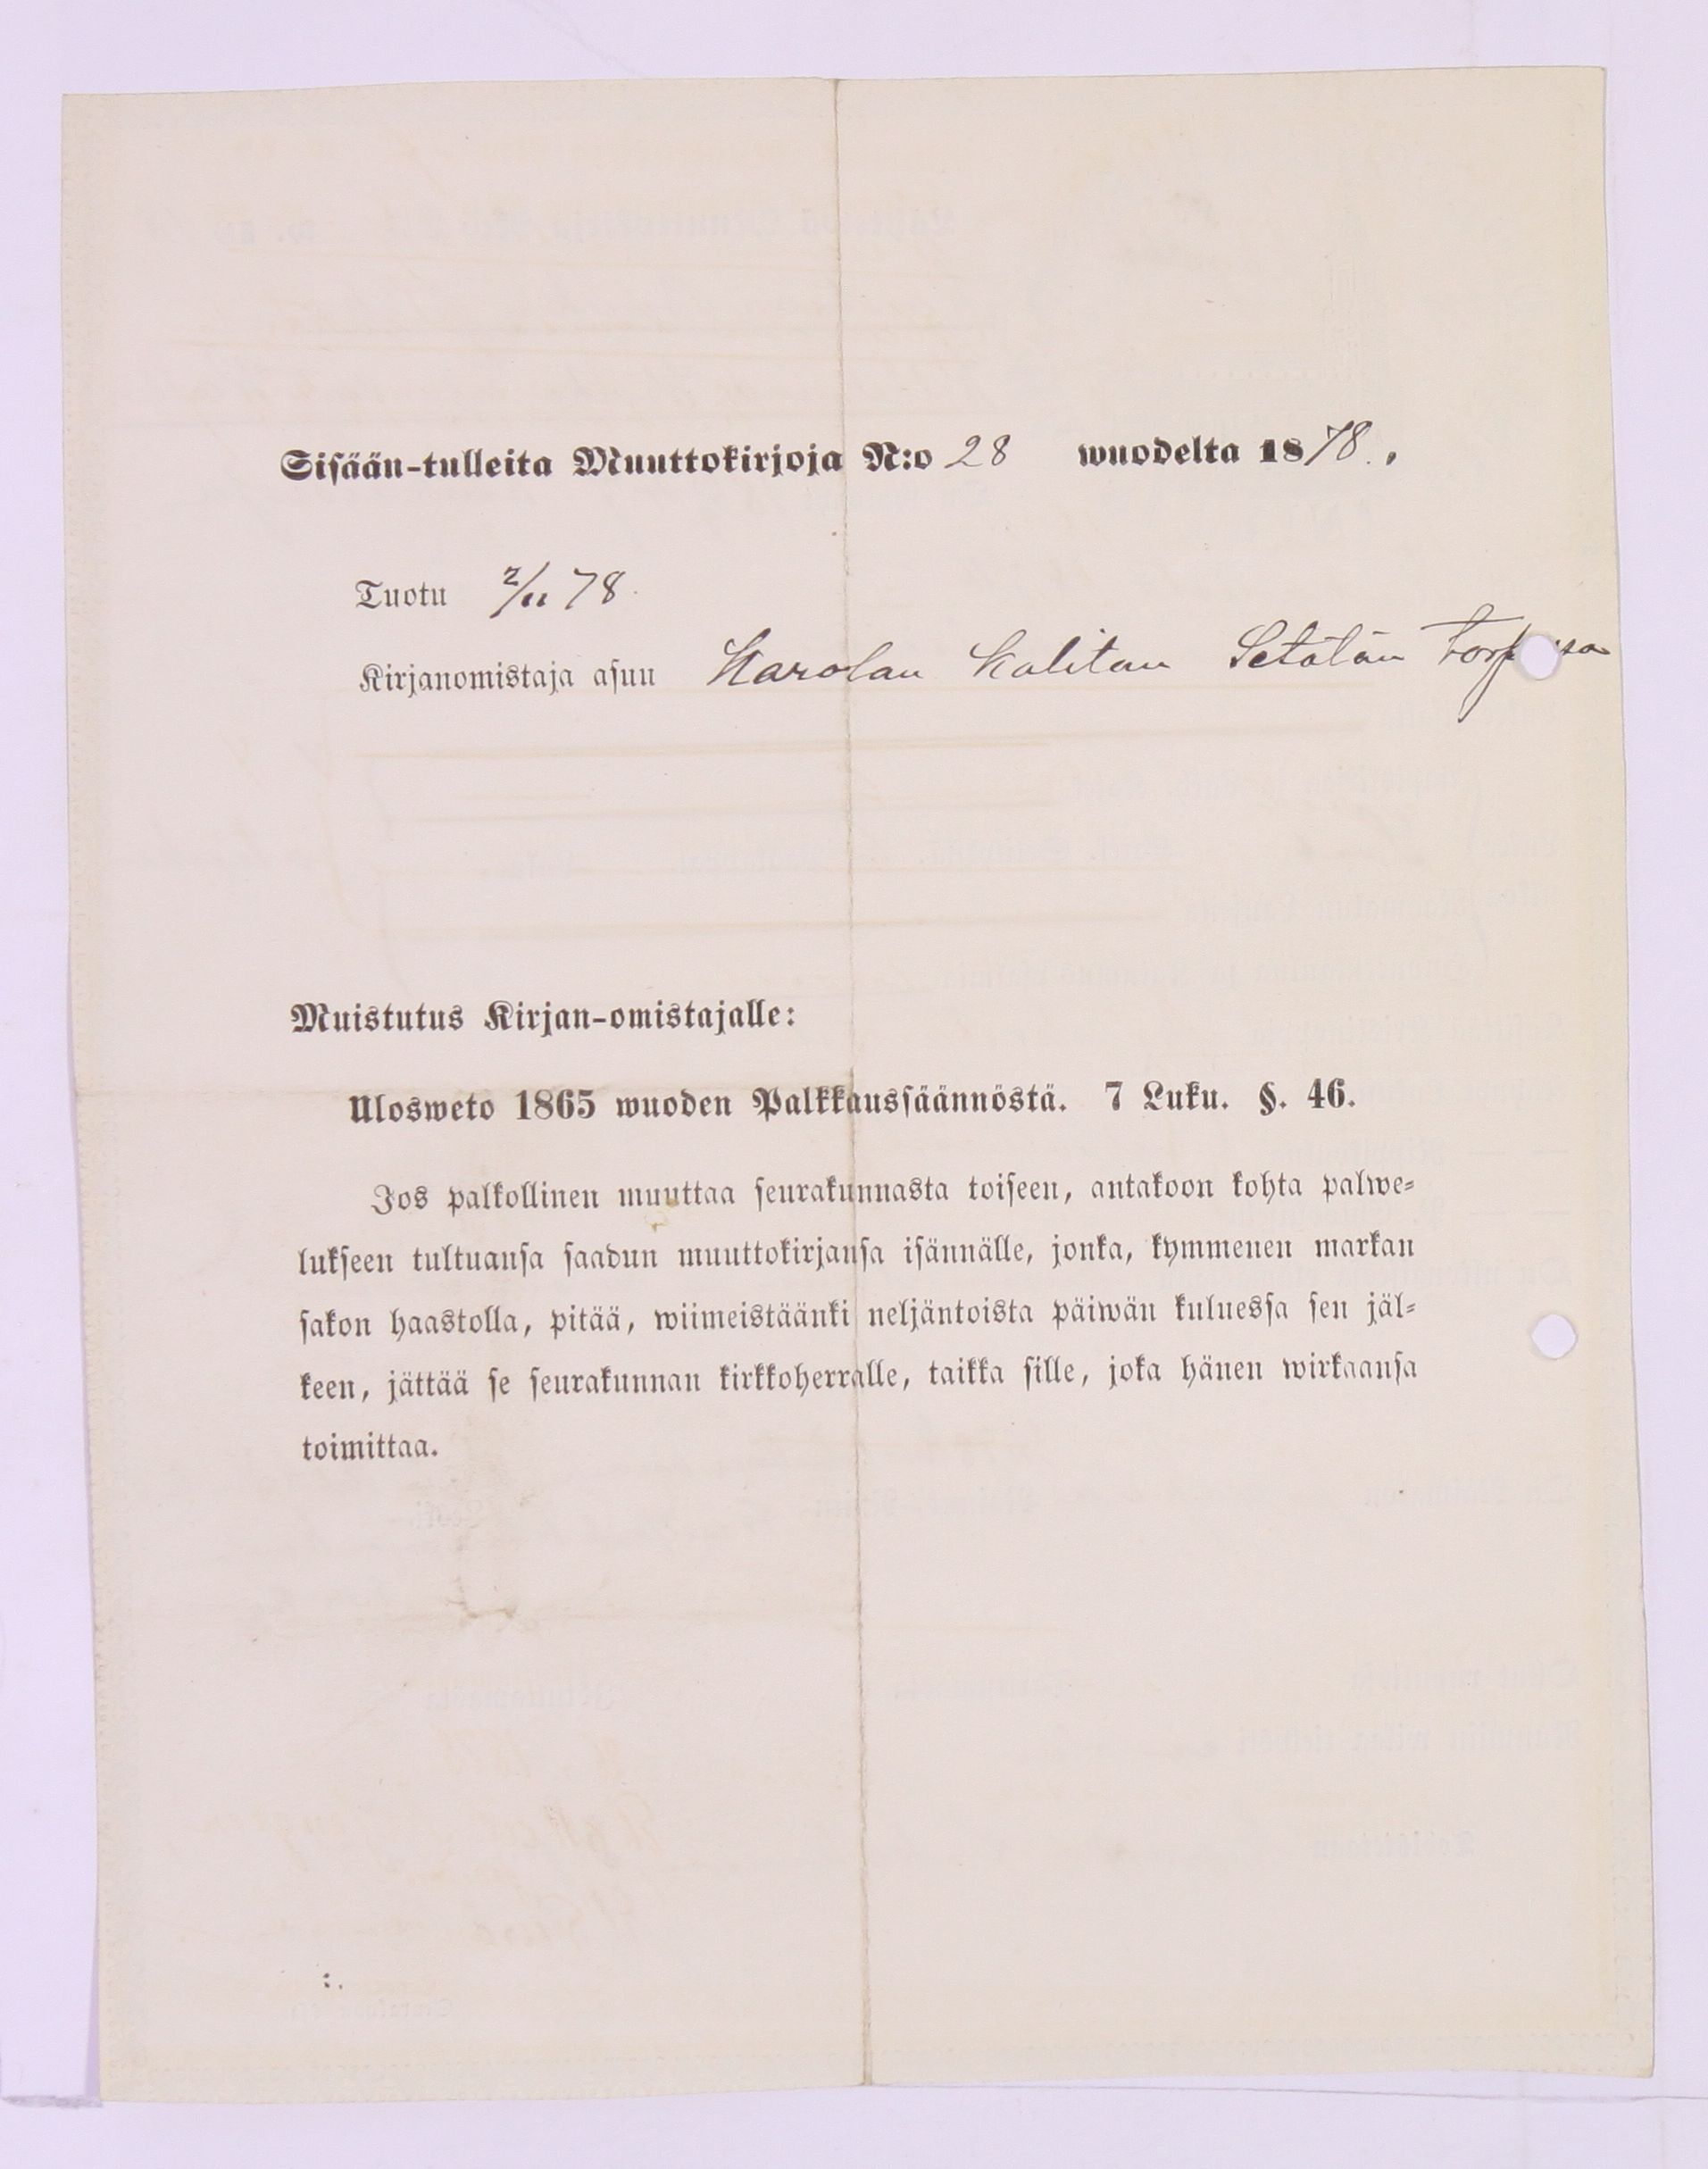 Sisään-tulleita Muuttokirjoja N:o 28 wuodelta 1878.,
Tuotu 2/11 78.
Kirjanomistaja asuu Karolan Kalitan Setälän
Muistutus Kirjan-omistajalle:
Ulosweto 1865 wuoden Palkkaussäännöstä. 7 Luku. §. 46.
Jos palkollinen muuttaa seurakunnasta toiseen, antakoon kohta palwe-
lukseen tultuansa saadun muuttokirjansa isännälle, jonka, kymmenen markan
sakon haastolla, pitää, wiimeistäänki neljäntoista päiwän kuluessa sen jäl-
keen, jättää se seurakunnan kirkkoherralle, taikka sille, joka hänen wirkaansa
toimittaa.